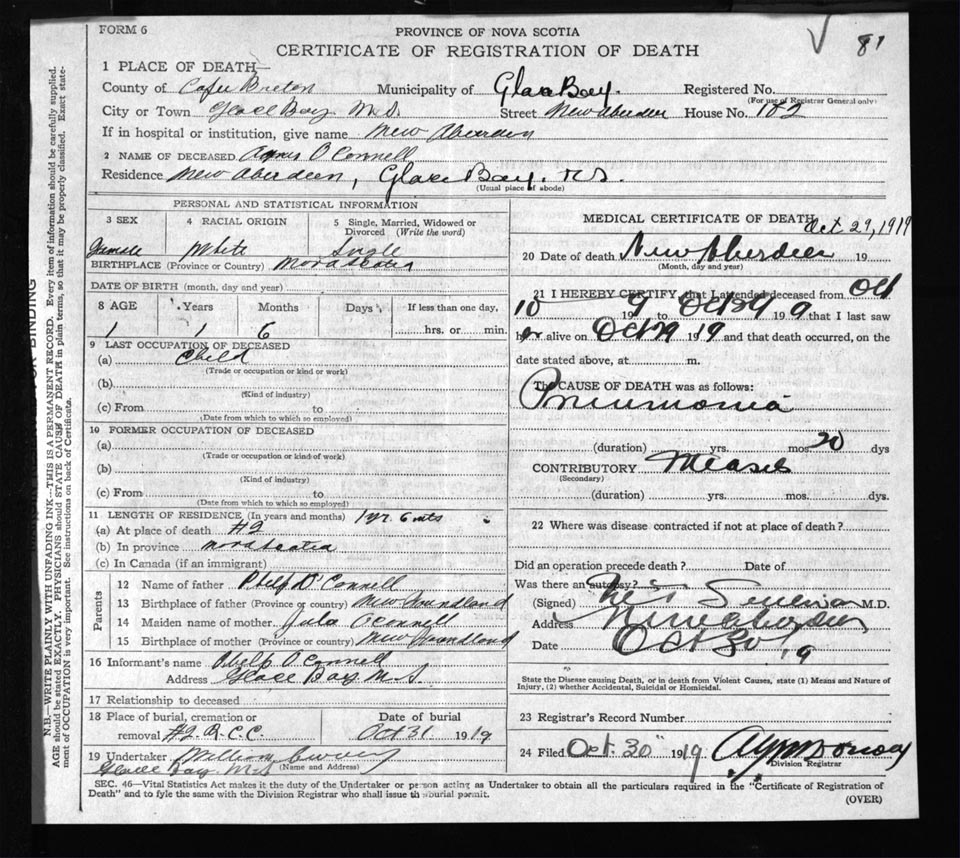 FORM 6
81
PROVINCE OF NOVA SCOTIA
CERTIFICATE OF REGISTRATION OF DEATH
1 PLACE OF DEATH—
County of Cape Breton Municipality of Glace Bay. Registered No.
(For use of Registrar General only)
City or Town Glace Bay N.S. Street New Aberdeen House No. 182
If in hospital or institution, give name New Aberdeen
2 NAME OF DECEASED Agnes O Connell
Residence New Aberdeen, Glace Bay. N.S.
(Usual place of abode)
PERSONAL AND STATISTICAL INFORMATION
3 SEX 4 RACIAL ORIGIN 5 Single, Married, Widowed or Divorced (Write the word)
Female White Single
BIRTHPLACE (Province or Country) Nova Scotia
DATE OF BIRTH (month, day and year)
8 AGE Years Months Days If less than one day,
1 1 6 hrs. or min.
9 LAST OCCUPATION OF DECEASED
(a) Child
(Trade or occupation or kind or work)
(b)
(Kind of industry)
(c) From to
(Date from which to which so employed)
10 FORMER OCCUPATION OF DECEASED
(a)
(Trade or occupation or kind of work)
(b)
(Kind of industry)
(c) From to
(Date from which to which so employed)
11 LENGTH OF RESIDENCE (In years and months) 1 yr. 6 mts
(a) At place of death #2
(b) In province Nova Scotia
(c) In Canada (if an immigrant)
Parents
12 Name of father Philp O'Connell
13 Birthplace of father (Province or country) New Foundland
14 Maiden name of mother Jula O'Connell
15 Birthplace of mother (Province or country) New Foundland
16 Informant's name Phelp O Connell
Address Glace Bay N.S.
17 Relationship to deceased
18 Place of burial, cremation or Date of burial
removal #2 R.C.C. Oct 31 1919
19 Undertaker William
Glace Bay N.S. (Name and Address)
MEDICAL CERTIFICATE OF DEATH Oct 29, 1919
20 Date of death New Aberdeen 19
(Month, day and year)
21 I HEREBY CERTIFY that I attended deceased from Oct
10 19 to Oct 29 19 9 that I last saw
her alive on Oct 29 19 and that death occurred, on the
date stated above, at m.
The CAUSE OF DEATH was as follows:
Pneumonia
(duration) yrs. mos. 20 dys
CONTRIBUTORY Measels
(Secondary)
(duration) yrs. mos. dys.
22 Where was disease contracted if not at place of death?
Did an operation precede death? Date of
Was there an autopsy?
(Signed) M.D.
Address New Aberdeen
Date Oct 30 19
State the Disease causing Death, or in death from Violent Causes, state (1) Means and Nature of
Injury, (2) whether Accidental, Suicidal or Homicidal.
23 Registrar's Record Number
24 Filed Oct. 30 1919
Division Registrar
SEC. 46—Vital Statistics Act makes it the duty of the Undertaker or person acting as Undertaker to obtain all the particulars required in the "Certificate of Registration of
Death" and to fyle the same with the Division Registrar who shall issue the burial permit.
(OVER)
FOR BINDING
N.B.—WRITE PLAINLY WITH UNFADING INK—THIS IS A PERMANENT RECORD. Every item of information should be carefully supplied.
AGE should be stated EXACTLY. PHYSICIANS should STATE CAUSE OF DEATH in plain terms, so that it may be properly classified. Exact state-
ment of OCCUPATION is very important. See instructions on back of Certificate.